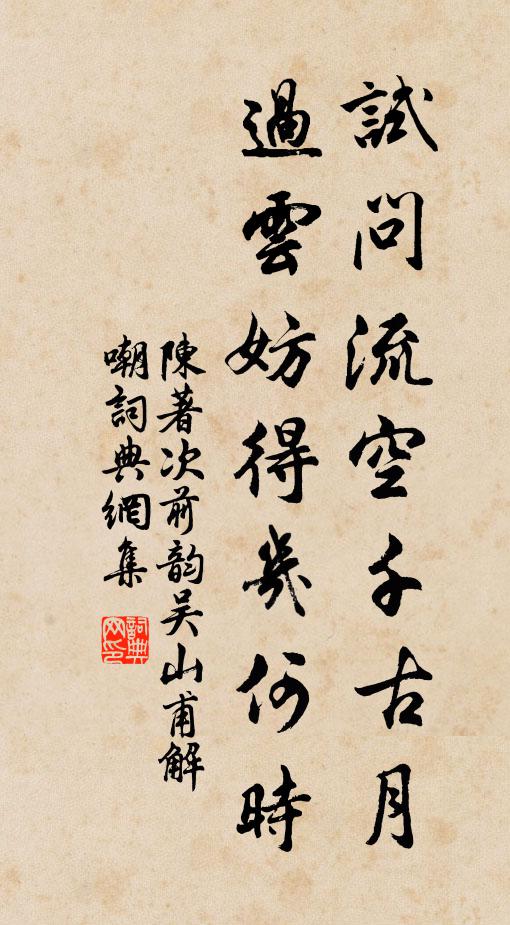 試問流空千古月
過雲妨得幾何時
陳著次前韵吴山甫解
嘲詞典網集
詞典網印